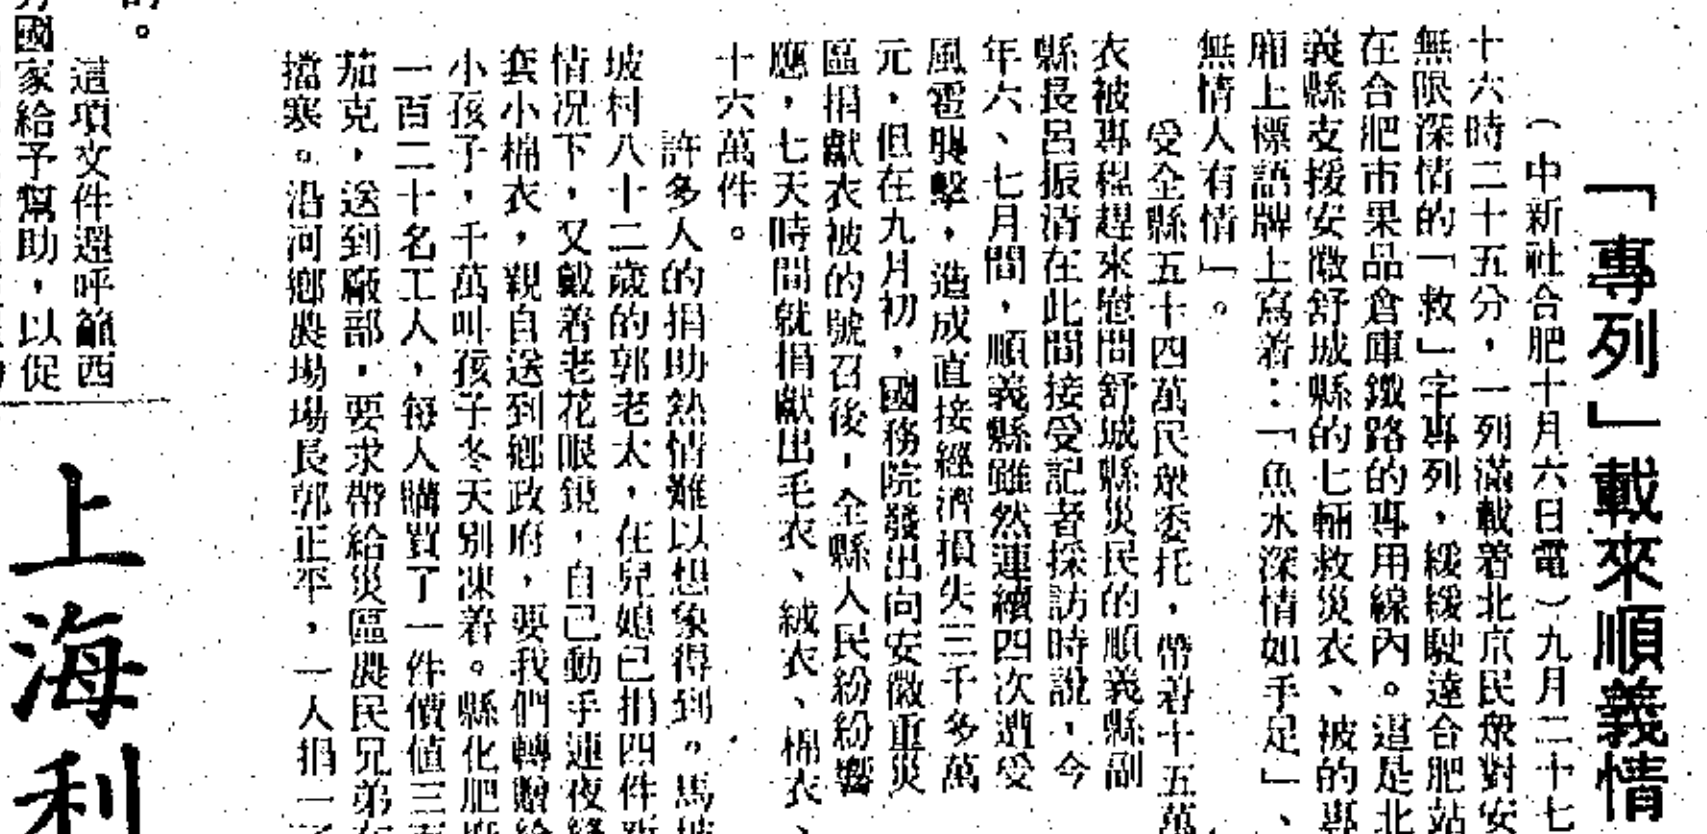 「專列」載來順義情
（中新社合肥十月六日電）九月二十七
十六時二十五分，一列滿載着北京民衆對安
無限深情的「救」字專列，緩緩駛達合肥站
在合肥市果品倉庫鐵路的專用線內。這是北
義縣支援安徽舒城縣的七輛救災衣、被的專
廂上標語牌上寫着：「魚水深情如手足」、
無情人有情」。
受全縣五十四萬民衆委托，帶着十五萬
衣被專程趕來慰問舒城縣災民的順義縣副
縣長呂振清在此間接受記者採訪時說，今
年六、七月間，順義縣雖然連續四次遭受
風雹襲擊，造成直接經濟損失三千多萬
元，但在九月初，國務院發出向安徽重災
區捐獻衣被的號召後，全縣人民紛紛響
應，七天時間就捐獻出毛衣、絨衣、棉衣、
十六萬件。
許多人的捐助熱情難以想象得到。馬坡
坡村八十二歲的郭老太，在兒媳已捐四件
情况下，又戴着老花眼鏡，自己動手連夜縫
套小棉衣，親自送到鄉政府，要我們轉贈給
小孩子，千萬叫孩子冬天別凍着。縣化肥廠
一百二十名工人，每人購買了一件價值三百
茄克，送到廠部，要求帶給災區農民兄弟
擋寒。沿河鄉農場場長郭正平，一人捐一
的。
這項文件還呼籲西
國家給予幫助，以促
上海利